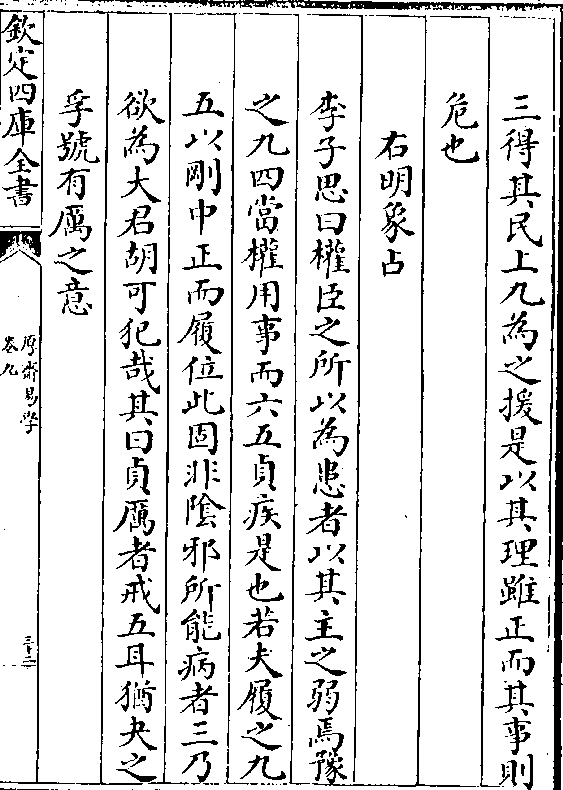 三得其民上九為之援是以其理雖正而其事則
危也
右明象占
李子思曰權臣之所以為患者以其主之弱焉豫
之九四當權用事而六五貞疾是也若夫履之九
五以剛中正而履位此固非陰邪所能病者三乃
欲為大君胡可犯哉其曰貞厲者戒五耳猶夬之
孚號有厲之意
欽定四庫全書
厚齋易學
卷九
三十二